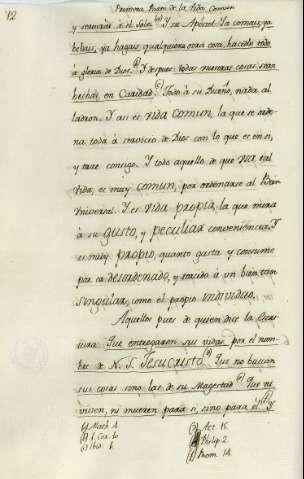 12
y servirás á el solo. Y su Apostol: Ya comais, ya
bebais, ya hagais qualquiera otra cosa, hacedlo todo
á gloria de Dios. Y despues: todas vuestras cosas sean
hechas en Caridad. Todo á su Dueño, nada al
ladron. Y asi es vida comun, la que se orde-
na toda á servicio de Dios con lo que es en si,
y trae consigo. Y todo aquello de que usa esta
vida, es muy comun, por ordenarse al bien
universal. Y es vida propia, la que mira
á su gusto, y peculiar conveniencia. Y
es muy propio, quanto gasta y consume
por ser desordenado, y torcido á un bien tan
singular, como el propio individuo.
Aquellos pues de quien dice la Escri-
tura: Que entregaron sus vidas por el nom-
bre de N. S. Jesucristo. Que no buscan
sus cosas sino las de su Magestad. Que ni
viven, ni mueren para si, sino para el. Y
Math. 4.
1. Cor. 10.
Act. 15.
Philip. 2.
Rom. 14.